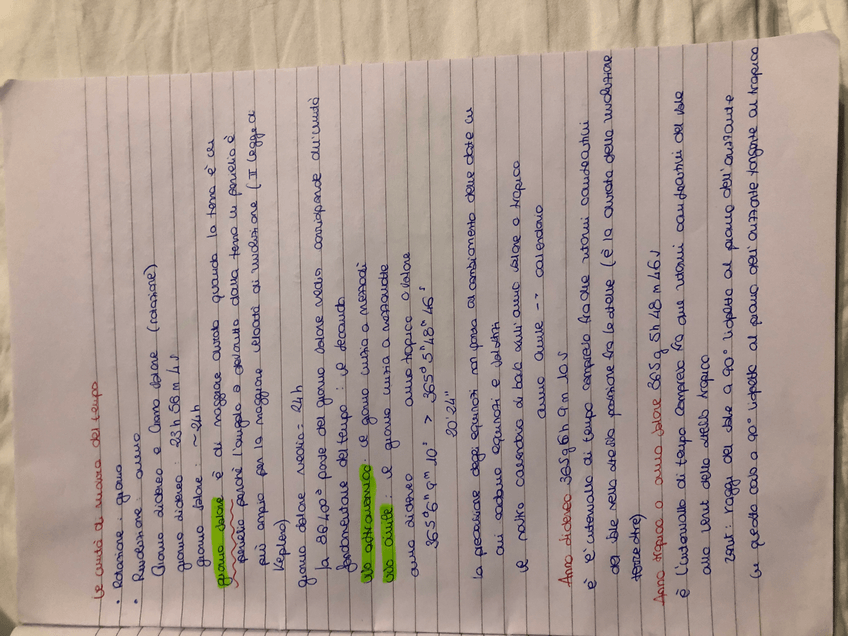 Le unità di misura del tempo
• Rotazione: giorno
• Rivoluzione: anno
Giorno sidereo e Giorno solare (rotazione)
giorno sidereo: 23h 56m 4s
giorno solare: ~24h
giorno solare è di maggiore durata quando la terra è in
perielio perché l'angolo descritto dalla terra in perielio è
più ampio per la maggiore velocità di rivoluzione (II legge di
Keplero)
giorno solare medio = 24h
la 86400ª parte del giorno solare medio corrisponde all'unità
fondamentale del tempo: il secondo
uso astronomico: il giorno inizia a mezzodì
uso civile: il giorno inizia a mezzanotte
anno sidereo anno tropico o solare
365ᵈ 6ʰ 9ᵐ 10ˢ > 365ᵈ 5ʰ 48ᵐ 46ˢ
20'24"
la precessione degli equinozi non porta al cambiamento delle date in
cui cadono equinozi e solstizi
il nostro calendario si basa sull'anno solare o tropico
anno civile -> calendario
Anno sidereo 365g 6h 9m 10s
è l'intervallo di tempo compreso fra due ritorni consecutivi
del sole nella stessa posizione fra le stelle (è la durata della rivoluzione
terrestre)
Anno tropico o anno solare 365g 5h 48m 46s
è l'intervallo di tempo compreso fra due ritorni consecutivi del sole
allo zenit dello stesso tropico
zenit: raggi del sole a 90° rispetto al piano dell'orizzonte
in questo caso a 90° rispetto al piano dell'orizzonte tangente al tropico